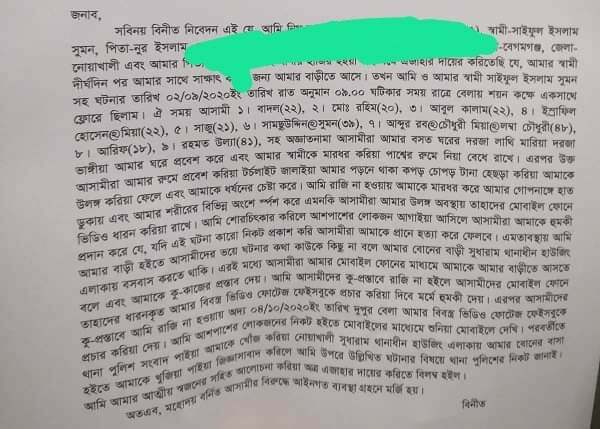 জনাব,
সবিনয় বিনীত নিবেদন এই যে, আমি স্বামী-সাইফুল ইসলাম
সুমন, পিতা-নুর ইসলাম -বেগমগঞ্জ, জেলা-
নোয়াখালী এবং আমার হাজির হইয়া এজাহার দায়ের করিতেছি যে, আমার স্বামী
দীর্ঘদিন পর আমার সাথে সাক্ষাৎ জন্য আমার বাড়ীতে আসে। তখন আমি ও আমার স্বামী সাইফুল ইসলাম সুমন
সহ ঘটনার তারিখ ০২/০৯/২০২০ইং তারিখ রাত অনুমান ০৯.০০ ঘটিকার সময় রাত্রে বেলায় শয়ন কক্ষে একসাথে
ফ্লোরে ছিলাম। ঐ সময় আসামী ১। বাদল(২২), ২। মোঃ রহিম(২০), ৩। আবুল কালাম(২২), ৪। ইস্রাফিল
হোসেন@মিয়া(২২), ৫। সাজু(২১), ৬। সামছুউদ্দিন@সুমন(৩৯), ৭। আব্দুর রব@চৌধুরী মিয়া@লম্বা চৌধুরী(৪৮),
৮। আরিফ(১৮), ৯। রহমত উল্যা(৪১), সহ অজ্ঞাতনামা আসামীরা আমার বসত ঘরের দরজা লাথি মারিয়া দরজা
ভাঙ্গীয়া আমার ঘরে প্রবেশ করে এবং আমার স্বামীকে মারধর করিয়া পার্শ্বের রুমে নিয়া বেধে রাখে। এরপর উক্ত
আসামীরা আমার রুমে প্রবেশ করিয়া টর্চলাইট জালাইয়া আমার পড়নে থাকা কাপড় চোপড় টানা হেছড়া করিয়া আমাকে
উলঙ্গ করিয়া ফেলে এবং আমাকে ধর্ষনের চেষ্টা করে। আমি রাজি না হওয়ায় আমাকে মারধর করে আমার গোপনাঙ্গে হাত
ঢুকায় এবং আমার শরীরের বিভিন্ন অংশে র্স্পশ করে এমনকি আসামীরা আমার উলঙ্গ অবস্থায় তাহাদের মোবাইল ফোনে
ভিডিও ধারন করিয়া রাখে। আমি শোরচিৎকার করিলে আশপাশের লোকজন আগাইয়া আসিলে আসামীরা আমাকে হুমকী
প্রদান করে যে, যদি এই ঘটনা কারো নিকট প্রকাশ করি আসামীরা আমাকে প্রানে হত্যা করে ফেলবে। এমতাবস্থায় আমি
আমার বাড়ী হইতে আসামীদের ভয়ে ঘটনার কথা কাউকে কিছু না বলে আমার বোনের বাড়ী সুধারাম থানাধীন হাউজিং
এলাকায় বসবাস করতে থাকি। এরই মধ্যে আসামীরা আমার মোবাইল ফোনের মাধ্যমে আমাকে আমার বাড়ীতে আসতে
বলে এবং আমাকে কু-কাজের প্রস্তাব দেয়। আমি আসামীদের কু-প্রস্তাবে রাজি না হইলে আসামীদের মোবাইল ফোনে
তাহাদের ধারনকৃত আমার বিবস্ত্র ভিডিও ফোটেজ ফেইসবুকে প্রচার করিয়া দিবে মর্মে হুমকী দেয়। এরপর আসামীদের
কু-প্রস্তাবে আমি রাজি না হওয়ায় অদ্য ০৪/১০/২০২০ইং তারিখ দুপুর বেলা আমার বিবস্ত্র ভিডিও ফোটেজ ফেইসবুকে
প্রচার করিয়া দেয়। আমি আশপাশের লোকজনের নিকট হইতে মোবাইলের মাধ্যমে শুনিয়া মোবাইলে দেখি। পরবর্তীতে
থানা পুলিশ সংবাদ পাইয়া আমাকে খোঁজ করিয়া নোয়াখালী সুধারাম থানাধীন হাউজিং এলাকায় আমার বোনের বাসা
হইতে আমাকে খুজিয়া পাইয়া জিজ্ঞাসাবাদ করিলে আমি উপরে উল্লিখিত ঘটানার বিষয়ে থানা পুলিশের নিকট জানাই।
আমি আমার আত্মীয় স্বজনের সহিত আলোচনা করিয়া অত্র এজাহার দায়ের করিতে বিলম্ব হইল।
অতএব, মহোদয় বর্নিত আসামীর বিরুদ্ধে আইনগত ব্যবস্থা গ্রহনে মর্জি হয়।
বিনীত